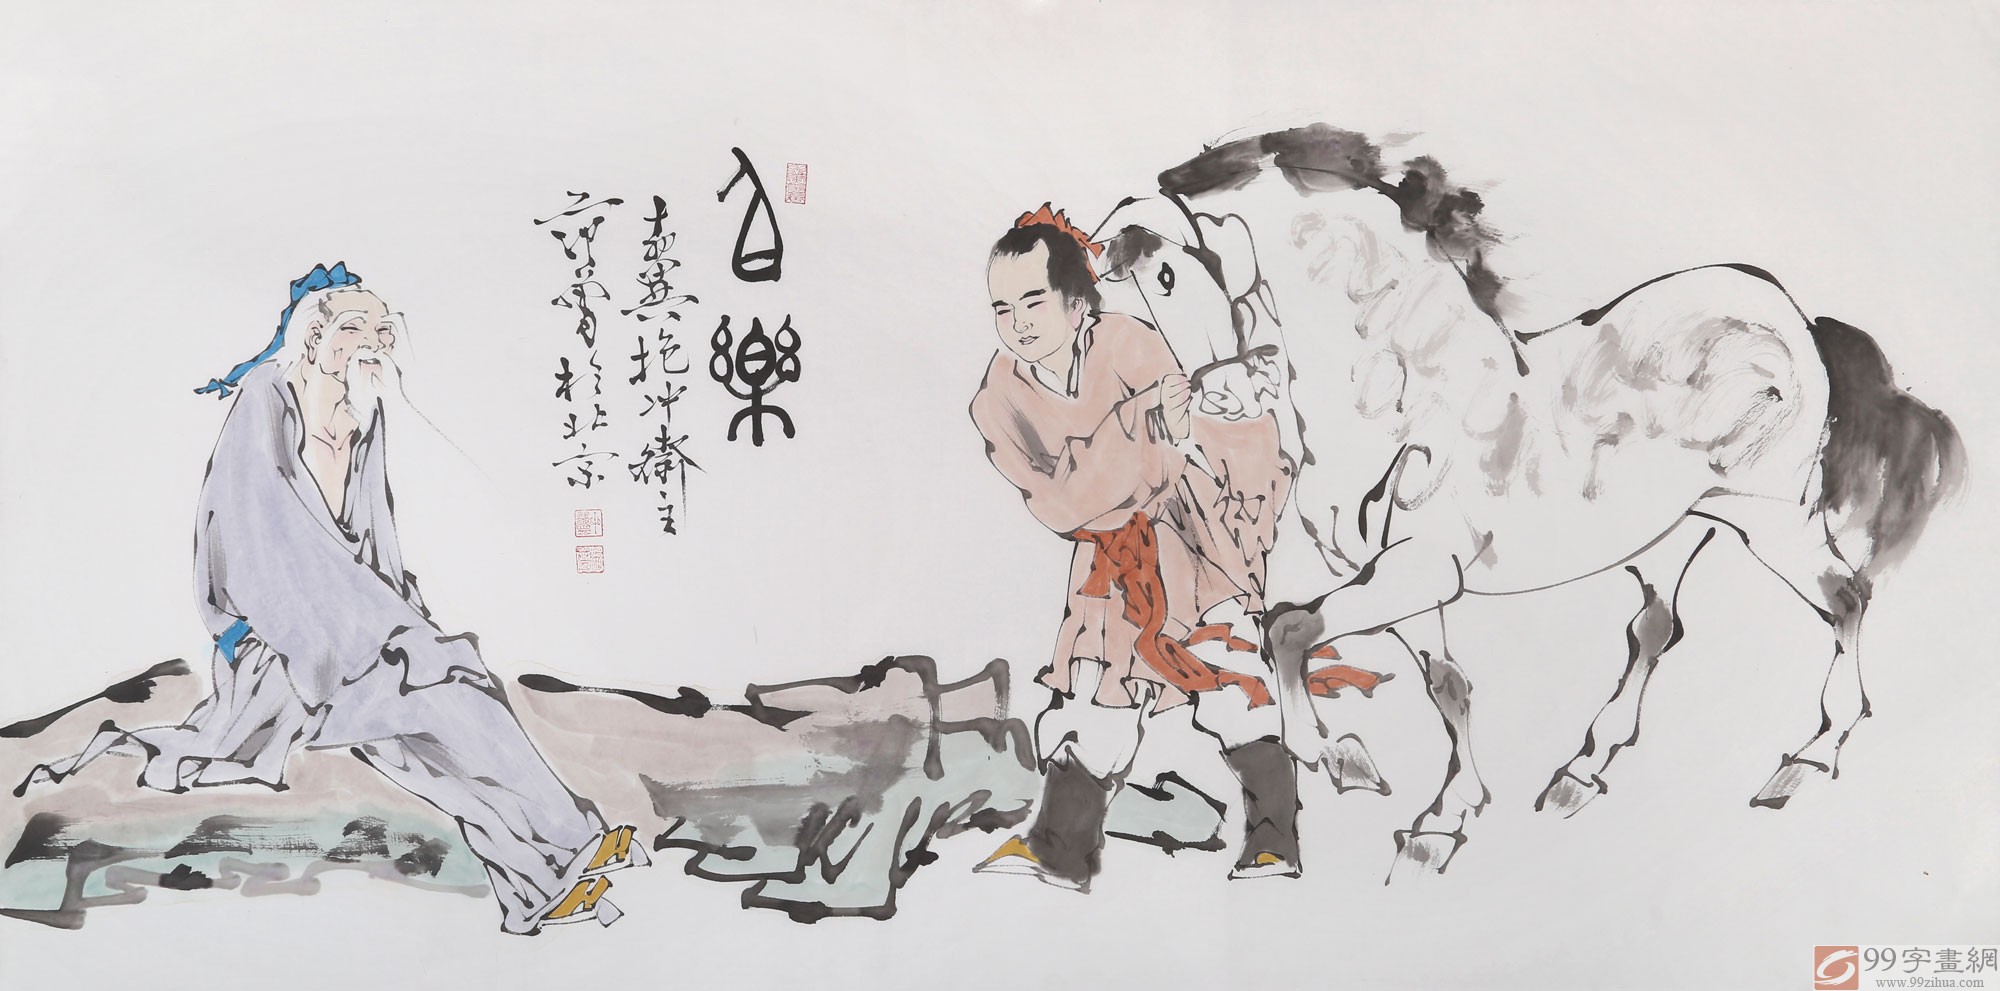 伯樂
十翼抱冲齋主
范曾於北京
99字畫網
www.99zihua.com